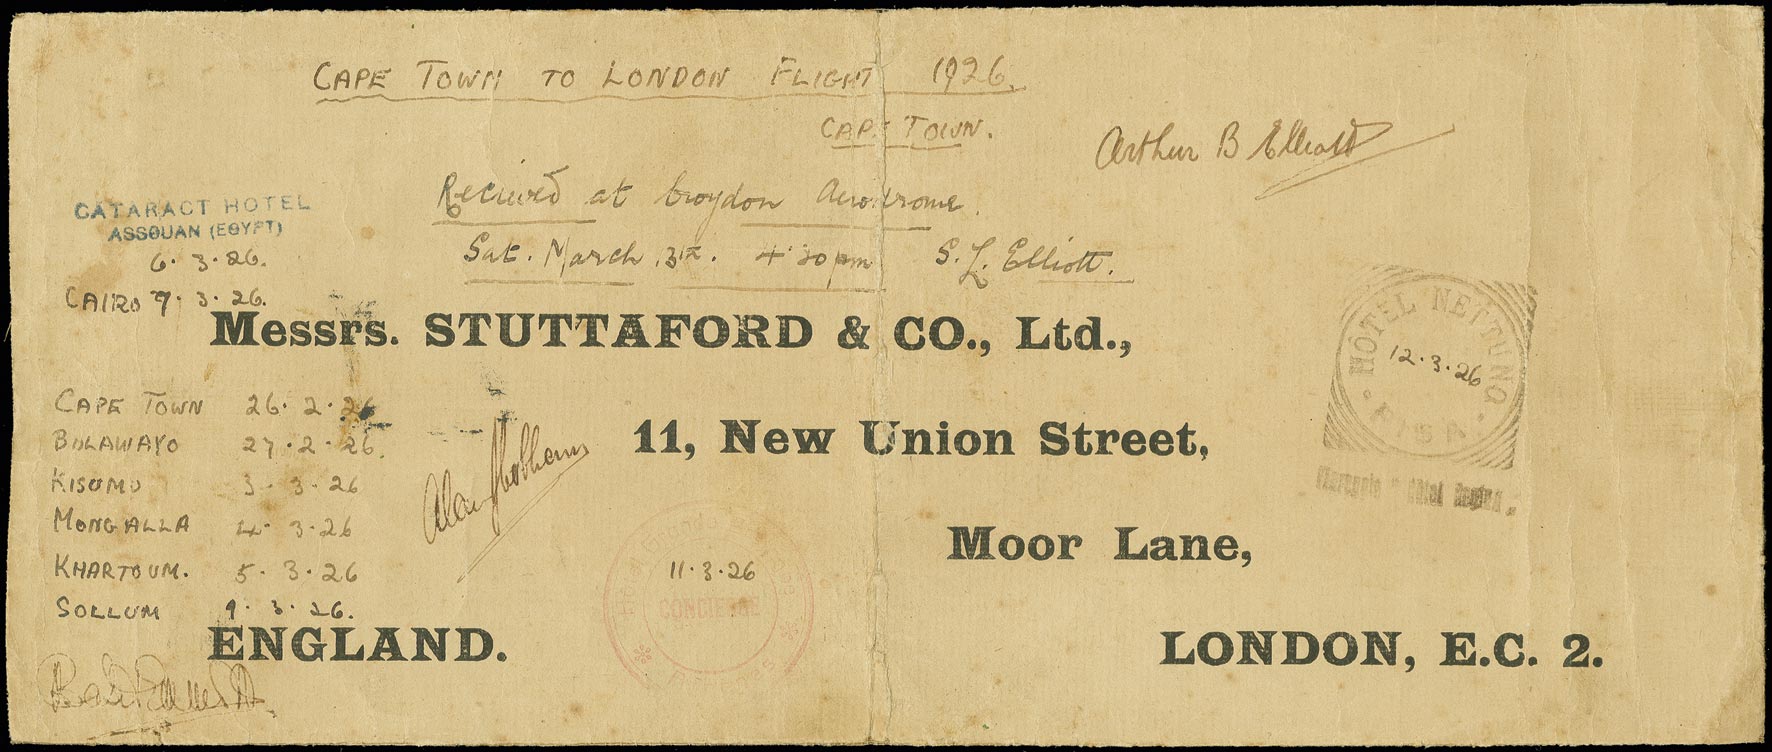 CAPE TOWN TO LONDON FLIGHT 1926.
CAPE TOWN.
Arthur B Elliott
Recieved at Croydon Aerodrome.
Sat. March 13th. 4.30pm S. L. Elliott.
CATARACT HOTEL
ASSOUAN (EGYPT)
6.3.26.
CAIRO 7.3.26.
Messrs. STUTTAFORD & CO., Ltd.,
HÔTEL NETTUNO
12.3.26
PISA
CAPE TOWN 26.2.26
BULAWAYO 27.2.26.
KISUMU 3.3.26
MONGALLA 4.3.26
KHARTOUM. 5.3.26
SOLLUM 9.3.26.
11, New Union Street,
Alan J Cobham
Moor Lane,
Hotel
11.3.26
CONCIERGE
ENGLAND.
LONDON, E.C. 2.